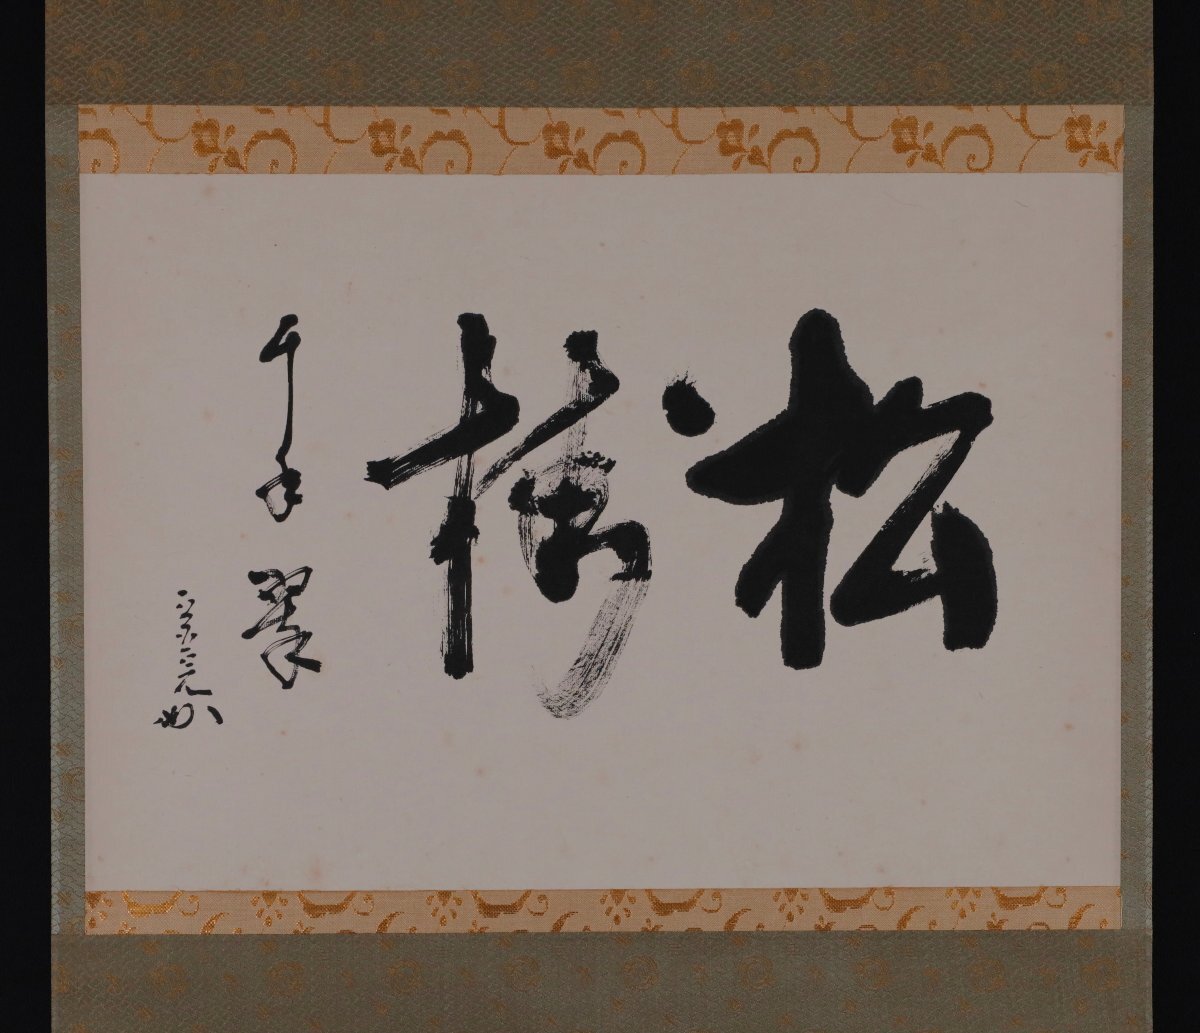 松樹
千年翠